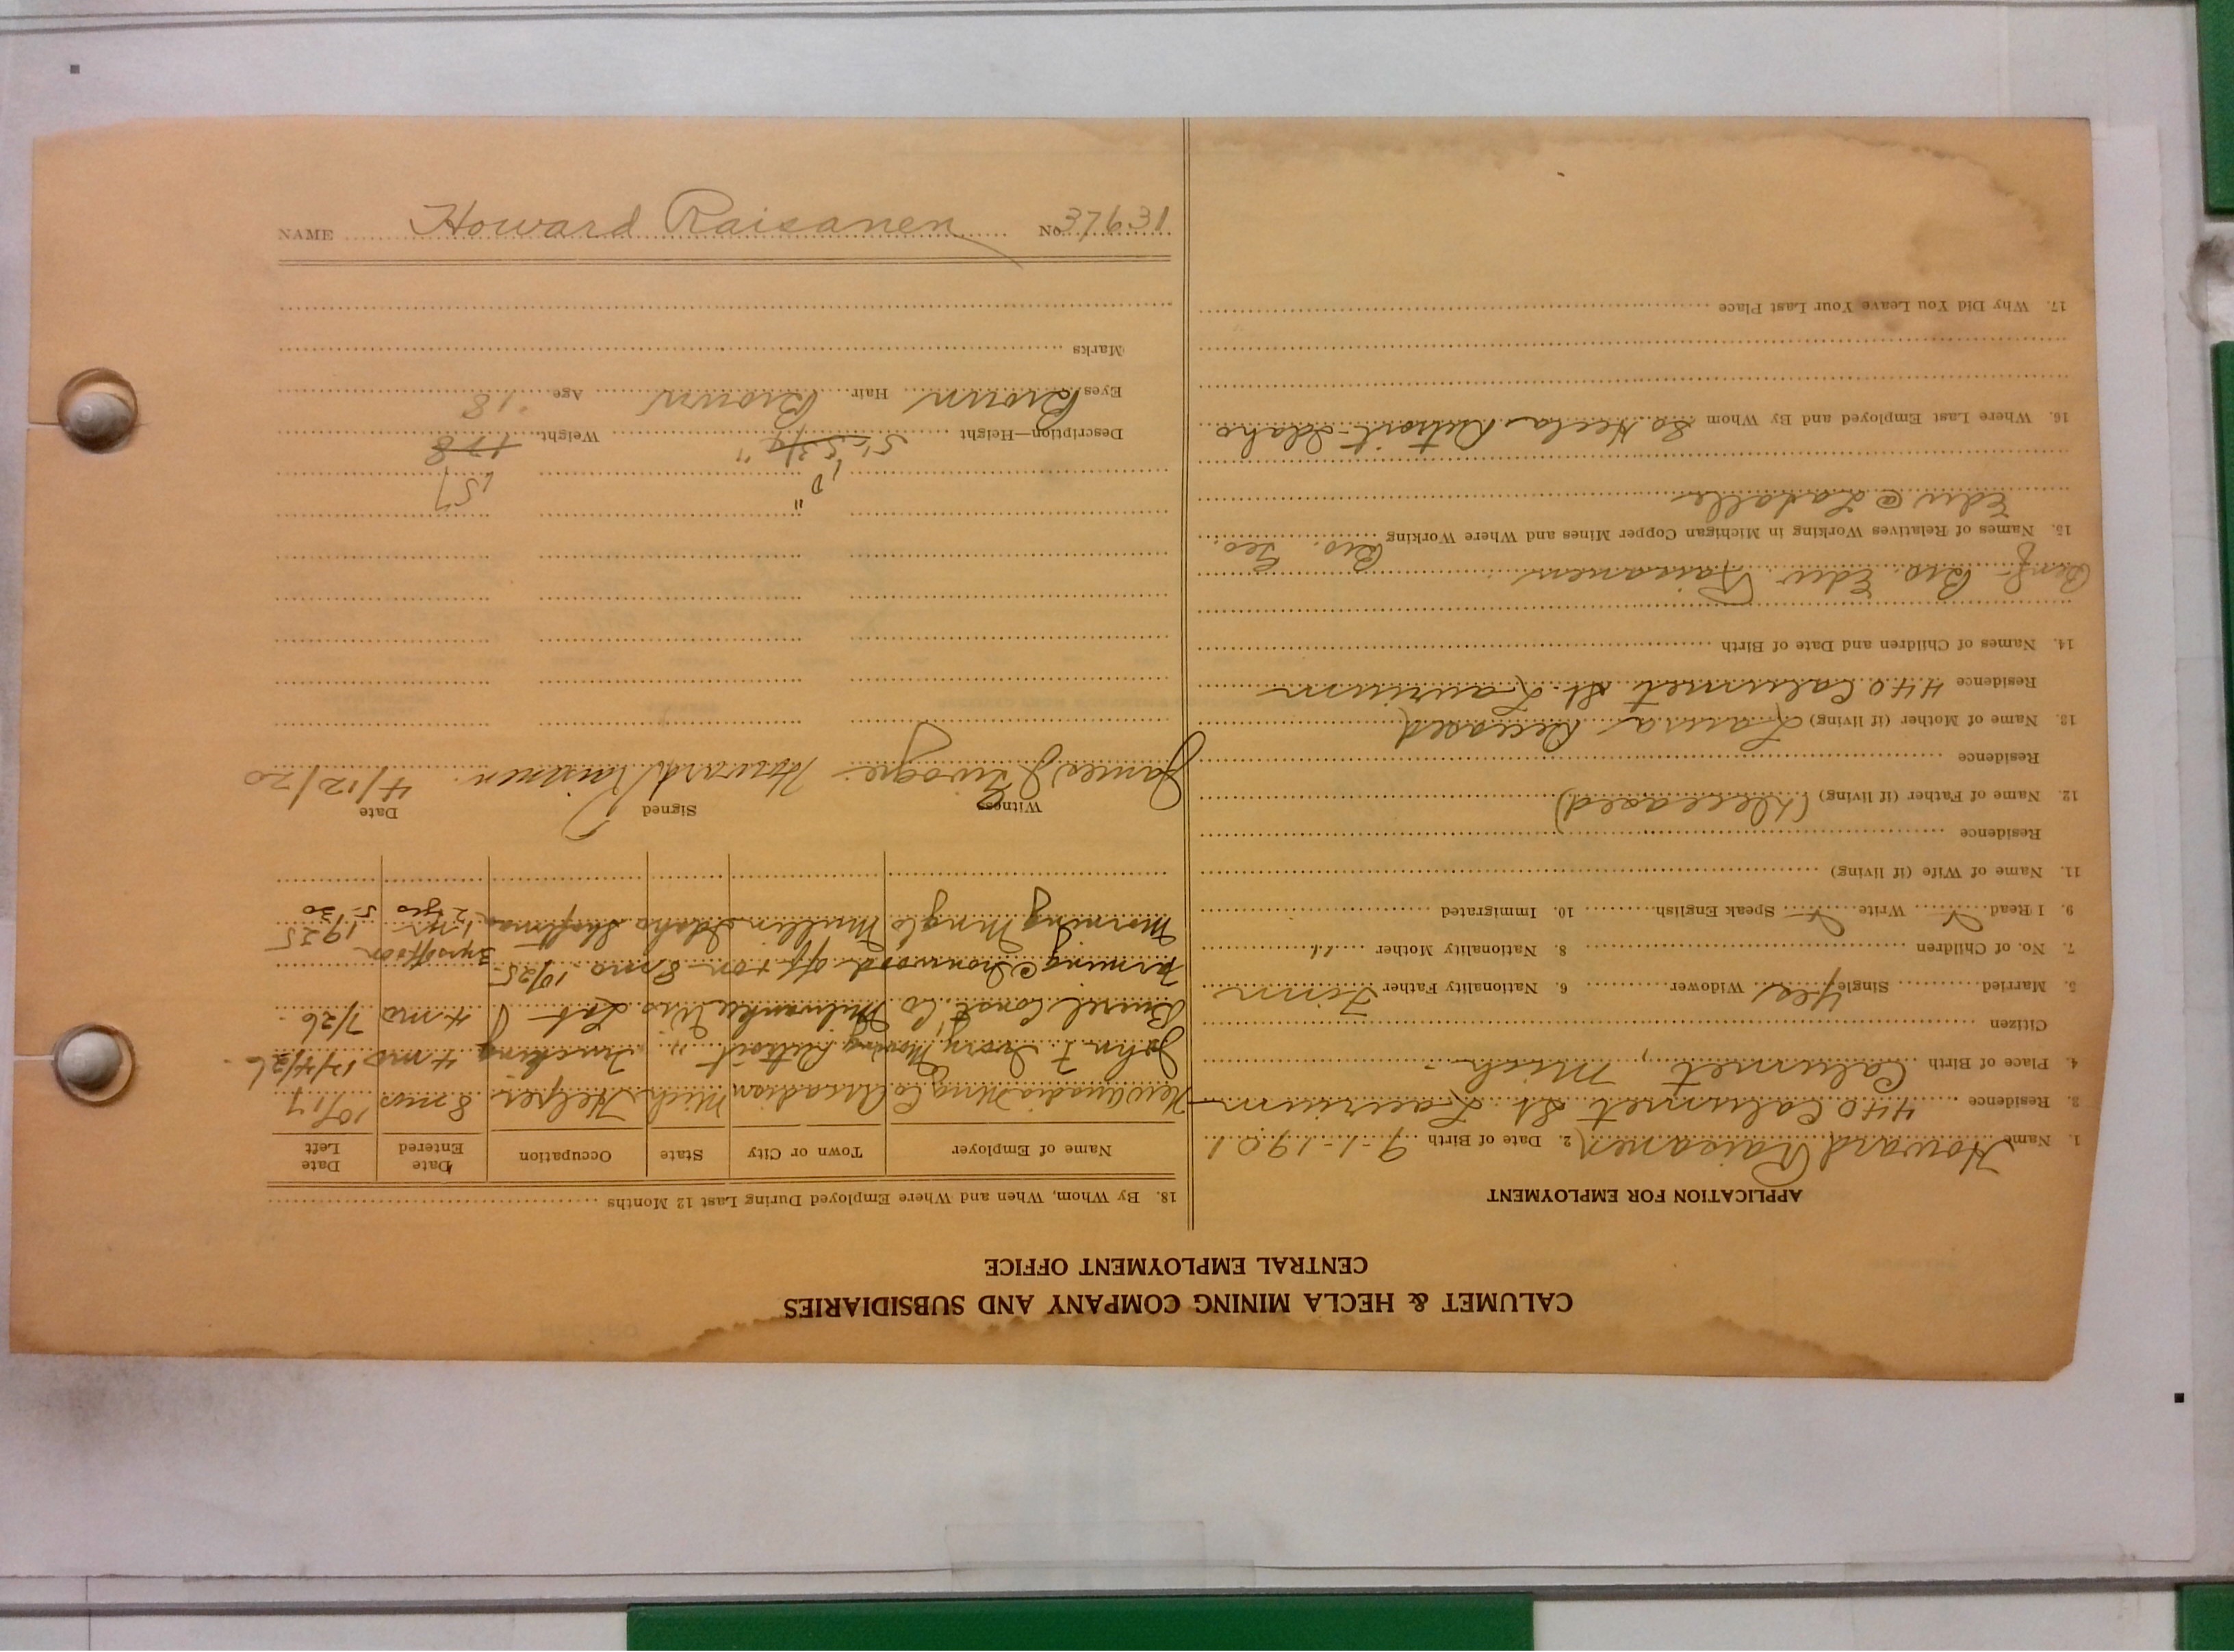 CALUMET & HECLA MINING COMPANY AND SUBSIDIARIES
CENTRAL EMPLOYMENT OFFICE
APPLICATION FOR EMPLOYMENT
1. Name Howard Raisanen 2. Date of Birth 9-1-1901
3. Residence 440 Calumet St. Laurium
4. Place of Birth Calumet, Mich.
Citizen
5. Married Single Yes Widower 6. Nationality Father Finn
7. No. of Children 8. Nationality Mother "
9. I Read Write Speak English 10. Immigrated
11. Name of Wife (if living)
Residence
12. Name of Father (if living) (Deceased)
Residence
13. Name of Mother (if living) Laura Deceased
Residence 440 Calumet St. Laurium
14. Names of Children and Date of Birth
Benf- Bro. Edw. Raisanen
15. Names of Relatives Working in Michigan Copper Mines and Where Working Bro. Geo.
Edw @ Lasalle
16. Where Last Employed and By Whom Idaho
17. Why Did You Leave Your Last Place
18. By Whom, When and Where Employed During Last 12 Months
Name of Employer Town or City State Occupation Date Entered Date Left
New Arcadian Mng Co Arcadian Mich Helper 8 mos 10/17
John F. Ivory Moving Detroit " Trucking 4 mo 12/4/26
Const. Co Milwaukee Wis Lab 4 mo 7/26
Farming Ironwood off + on 8 mo 10/25 3 yrs off + on 1925
Morning Mng Co Mullin Idaho Shaftman 5-30
Witness Signed Date
James J. Howard Raisanen 4/12/20
Description—Height 5' 5 3/4" Weight 128
157
Eyes Brown Hair Brown Age 18
Marks
NAME Howard Raisanen No 37631